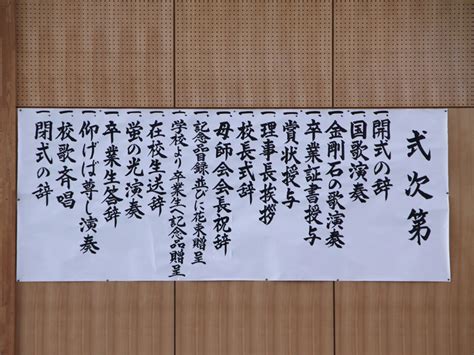 式次第
一 開式の辞
一 国歌演奏
一 金剛石の歌演奏
一 卒業証書授与
一 賞状授与
一 理事長挨拶
一 校長式辞
一 母師会会長祝辞
一 記念品目録並びに花束贈呈
一 学校より卒業生へ記念品贈呈
一 在校生送辞
一 蛍の光演奏
一 卒業生答辞
一 仰げば尊し演奏
一 校歌斉唱
一 閉式の辞